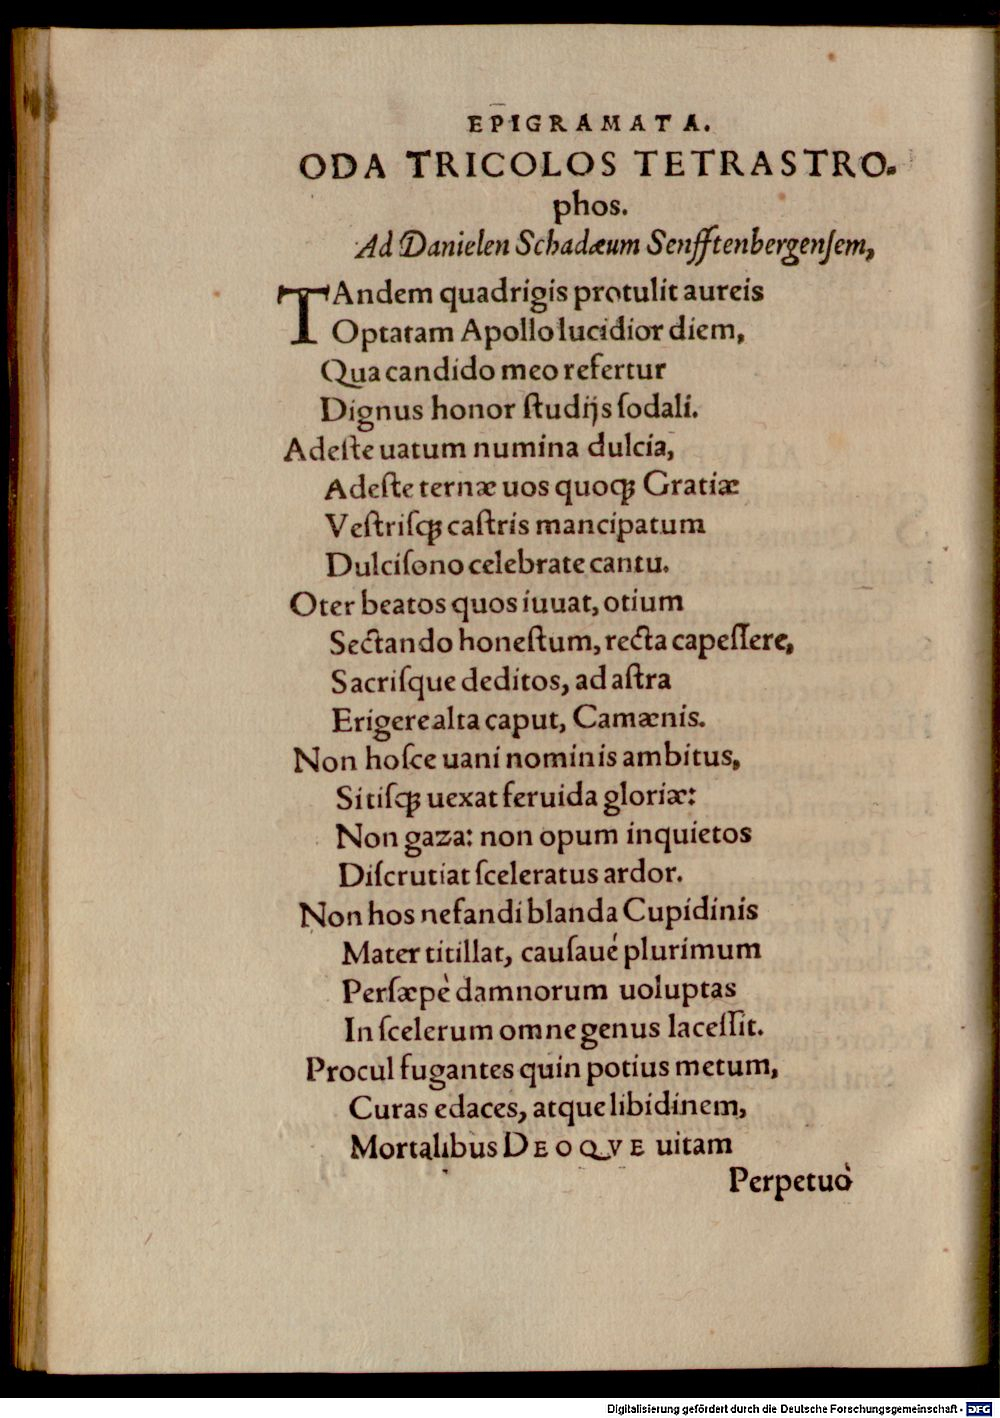 EPIGRAMATA.
ODA TRICOLOS TETRASTRO-
phos.
Ad Danielen Schadæum Senfftenbergensem,
TAndem quadrigis protulit aureis
Optatam Apollo lucidior diem,
Qua candido meo refertur
Dignus honor ſtudijs ſodali.
Adeſte uatum numina dulcia,
Adeſte ternæ uos quoꝗ Gratiæ
Veſtriſꝗ caſtris mancipatum
Dulciſono celebrate cantu.
O ter beatos quos iuuat, otium
Sectando honeſtum, recta capeſſere,
Sacriſque deditos, ad aſtra
Erigere alta caput, Camænis.
Non hoſce uani nominis ambitus,
Sitiſꝗ uexat feruida gloriæ:
Non gaza: non opum inquietos
Diſcrutiat ſceleratus ardor.
Non hos nefandi blanda Cupidinis
Mater titillat, cauſaué plurimum
Perſæpè damnorum uoluptas
In ſcelerum omne genus laceſſit.
Procul fugantes quin potius metum,
Curas edaces, atque libidinem,
Mortalibus DEOQVE uitam
Perpetuò
Digitalisierung gefördert durch die Deutsche Forschungsgemeinschaft - DFG